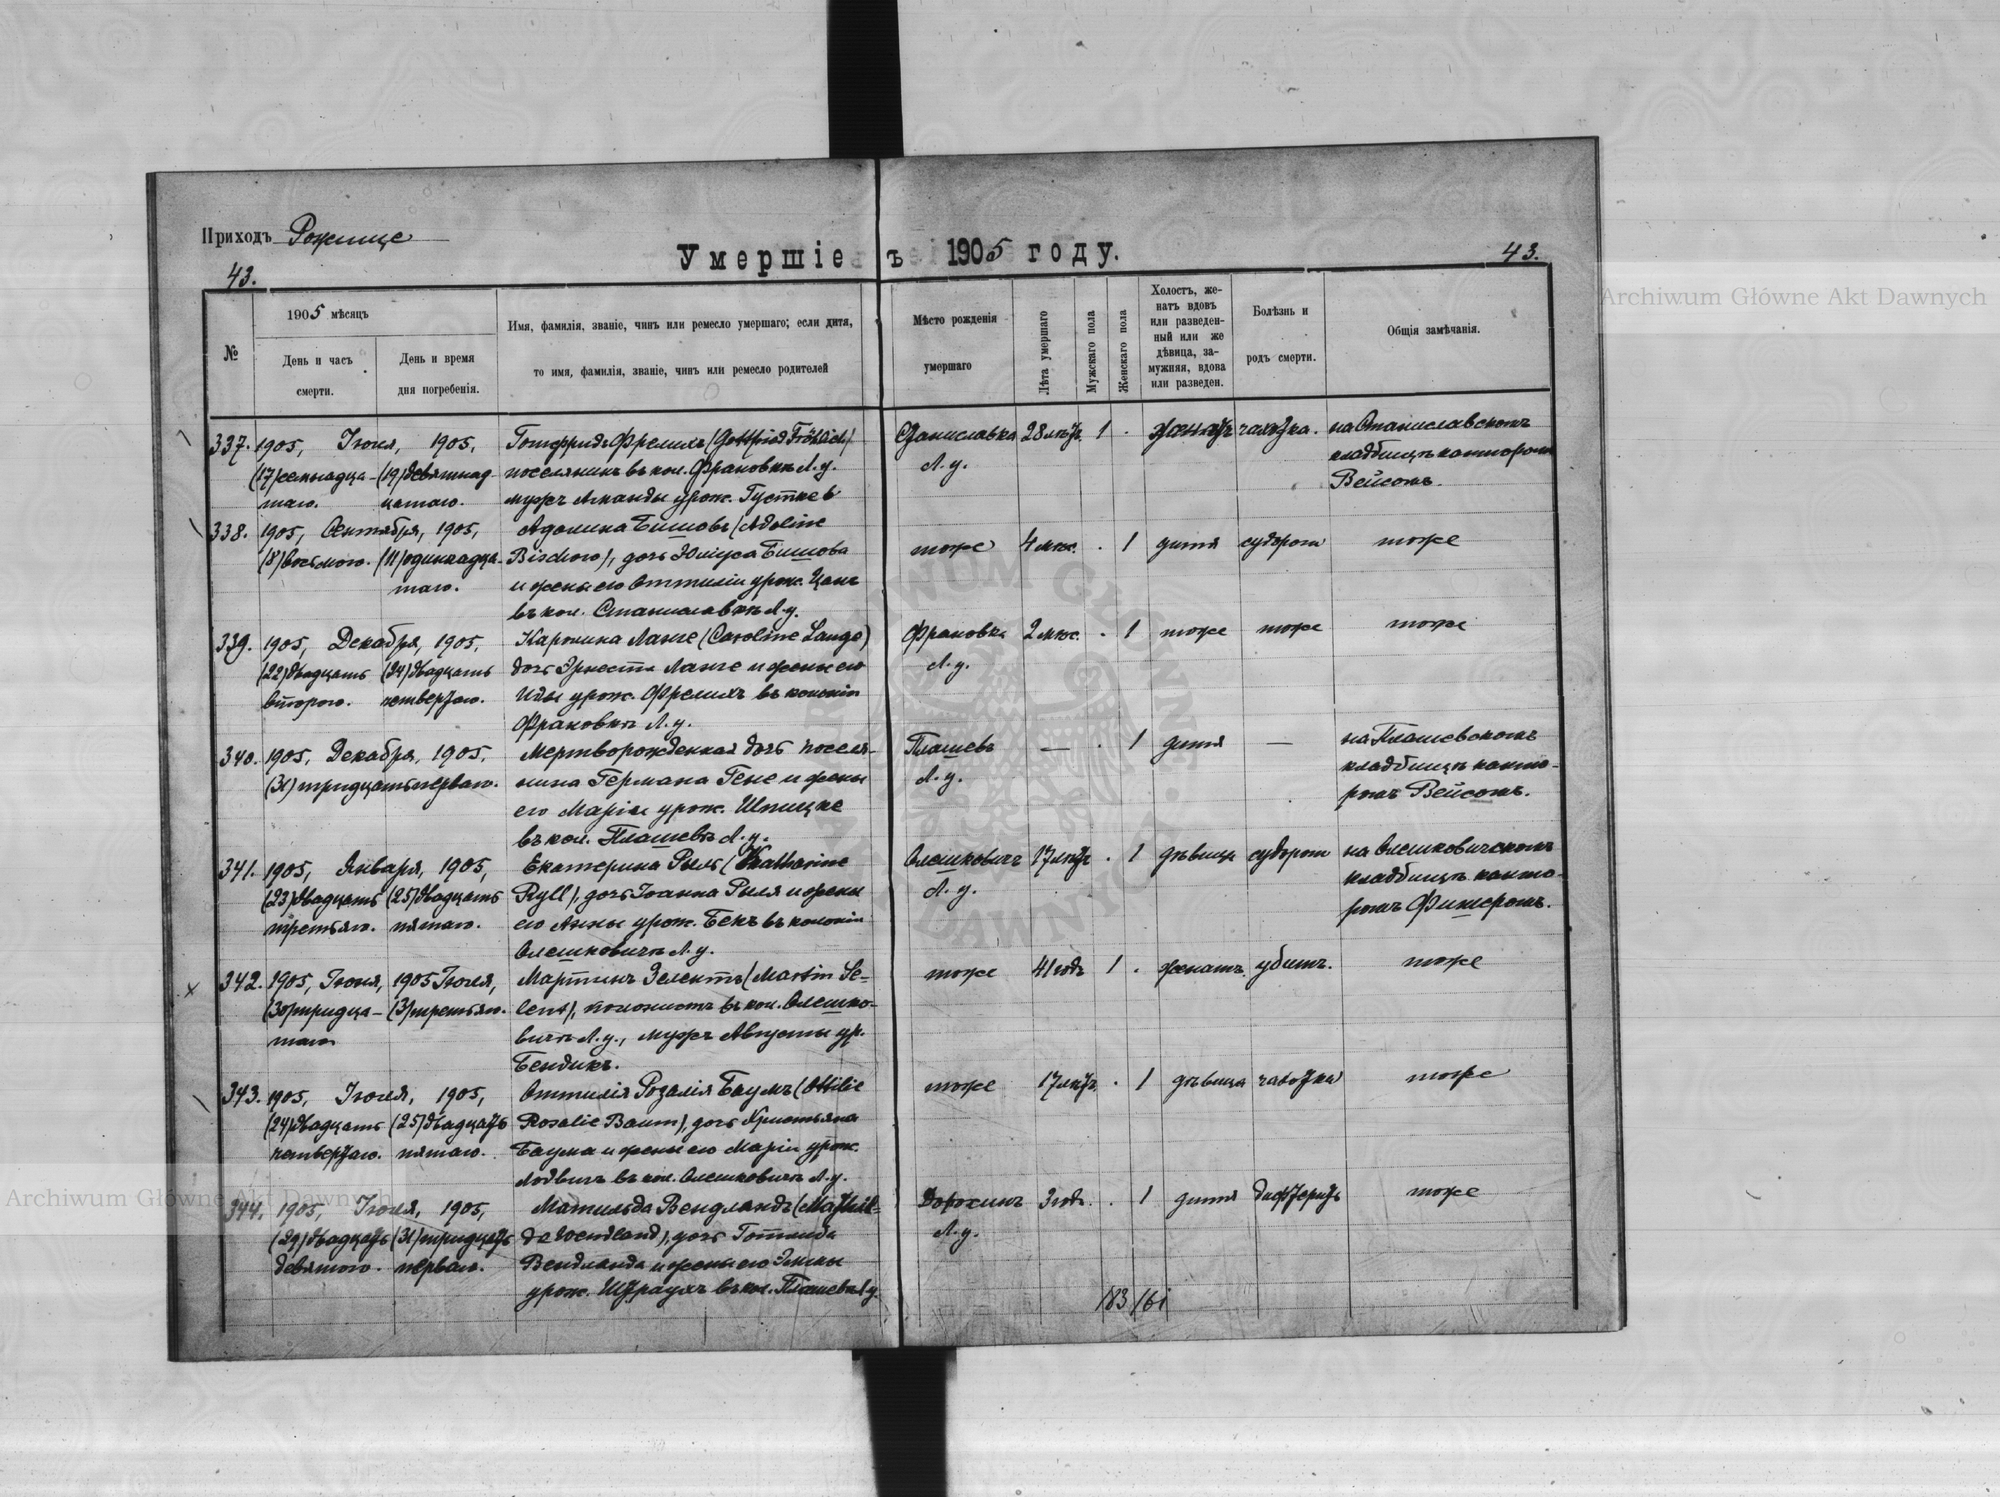 Приходъ Рожище
Умершіе въ 1905 году.
43.
43.
№
1905 мѣсяцъ
День и часъ
смерти.
День и время
дня погребенія.
Имя, фамилія, званіе, чинъ или ремесло умершаго; если дитя,
то имя, фамилія, званіе, чинъ или ремесло родителей
Мѣсто рожденія
умершаго
Лѣта умершаго
Мужскаго пола
Женскаго пола
Холостъ, же-
натъ вдовъ
или разведен-
ный или же
дѣвица, за-
мужняя, вдова
или разведен.
Болѣзнь и
родъ смерти.
Общія замѣчанія.
337. 1905, Іюля, 1905, Готфридъ Фрелихъ (Gottfried Fröhlich) Станиславка 28 лѣтъ 1 . женатъ чахотка. на Станиславскомъ
(17) семнадца- (19) девятнад- поселянинъ въ кол. Франовкѣ Л. у. Л. у. кладбищѣ канторомъ
таго. цатаго. мужъ Аманды урож. Густке Вейсомъ.
338. 1905, Сентября, 1905, Адолина Бишовъ (Adoline
(8) восьмого. (11) одиннадца- Bischow), дочь Юліуса Бишова тоже 4 мѣс. . 1 дитя судороги тоже
таго. и жены его Оттиліи урож. Цанъ
въ кол. Станиславкѣ Л. у.
339. 1905, Декабря, 1905, Каролина Ланге (Caroline Lange) Франовка 2 мѣс. . 1 тоже тоже тоже
(22) двадцать (24) двадцать дочь Эрнеста Ланге и жены его Л. у.
второго. четвертаго. Иды урож. Фрелихъ въ колоніи
Франовкѣ Л. у.
340. 1905, Декабря, 1905, Мертворожденная дочь поселя- Плашевъ — . 1 дитя — на Плашевскомъ
(31) тридцать перваго. нина Германа Гене и жены Л. у. кладбищѣ канто-
его Маріи урож. Шпицке ромъ Вейсомъ.
въ кол. Плашевѣ Л. у.
341. 1905, Января, 1905, Екатерина Рыль (Katharine Олешковичъ 17 лѣтъ . 1 дѣвица судороги на Олешковичскомъ
(23) двадцать (25) двадцать Ryll), дочь Іоанна Рыля и жены Л. у. кладбищѣ канто-
третьяго. пятаго. его Анны урож. Бекъ въ колоніи ромъ Фишеромъ.
Олешковичѣ Л. у.
342. 1905, Іюня, 1905 Іюля, Мартинъ Зелентъ (Martin Se- тоже 41 годъ 1 . женатъ. убитъ. тоже
(30) тридца- (3) третьяго. lent), колонистъ въ кол. Олешко-
таго вичѣ Л. у., мужъ Августы ур.
Бендикъ.
343. 1905, Іюля, 1905, Оттилія Розалія Баумъ (Ottilie тоже 17 лѣтъ . 1 дѣвица чахотка тоже
(24) двадцать (25) двадцать Rosalie Baum), дочь Христьяна
четвертаго. пятаго. Баума и жены его Маріи урож.
Лодвигъ въ кол. Олешковичѣ Л. у.
344. 1905, Іюля, 1905, Матильда Вендландъ (Mathil- Дорохинъ 3 год. . 1 дитя дифтеритъ тоже
(29) двадцать (31) тридцать da Wendland), дочь Готлиба Л. у.
девятого. перваго. Вендланда и жены его Эммы
урож. Штраухъ въ кол. Плашевѣ Л у.
183 161
Archiwum Główne Akt Dawnych
Archiwum Główne Akt Dawnych